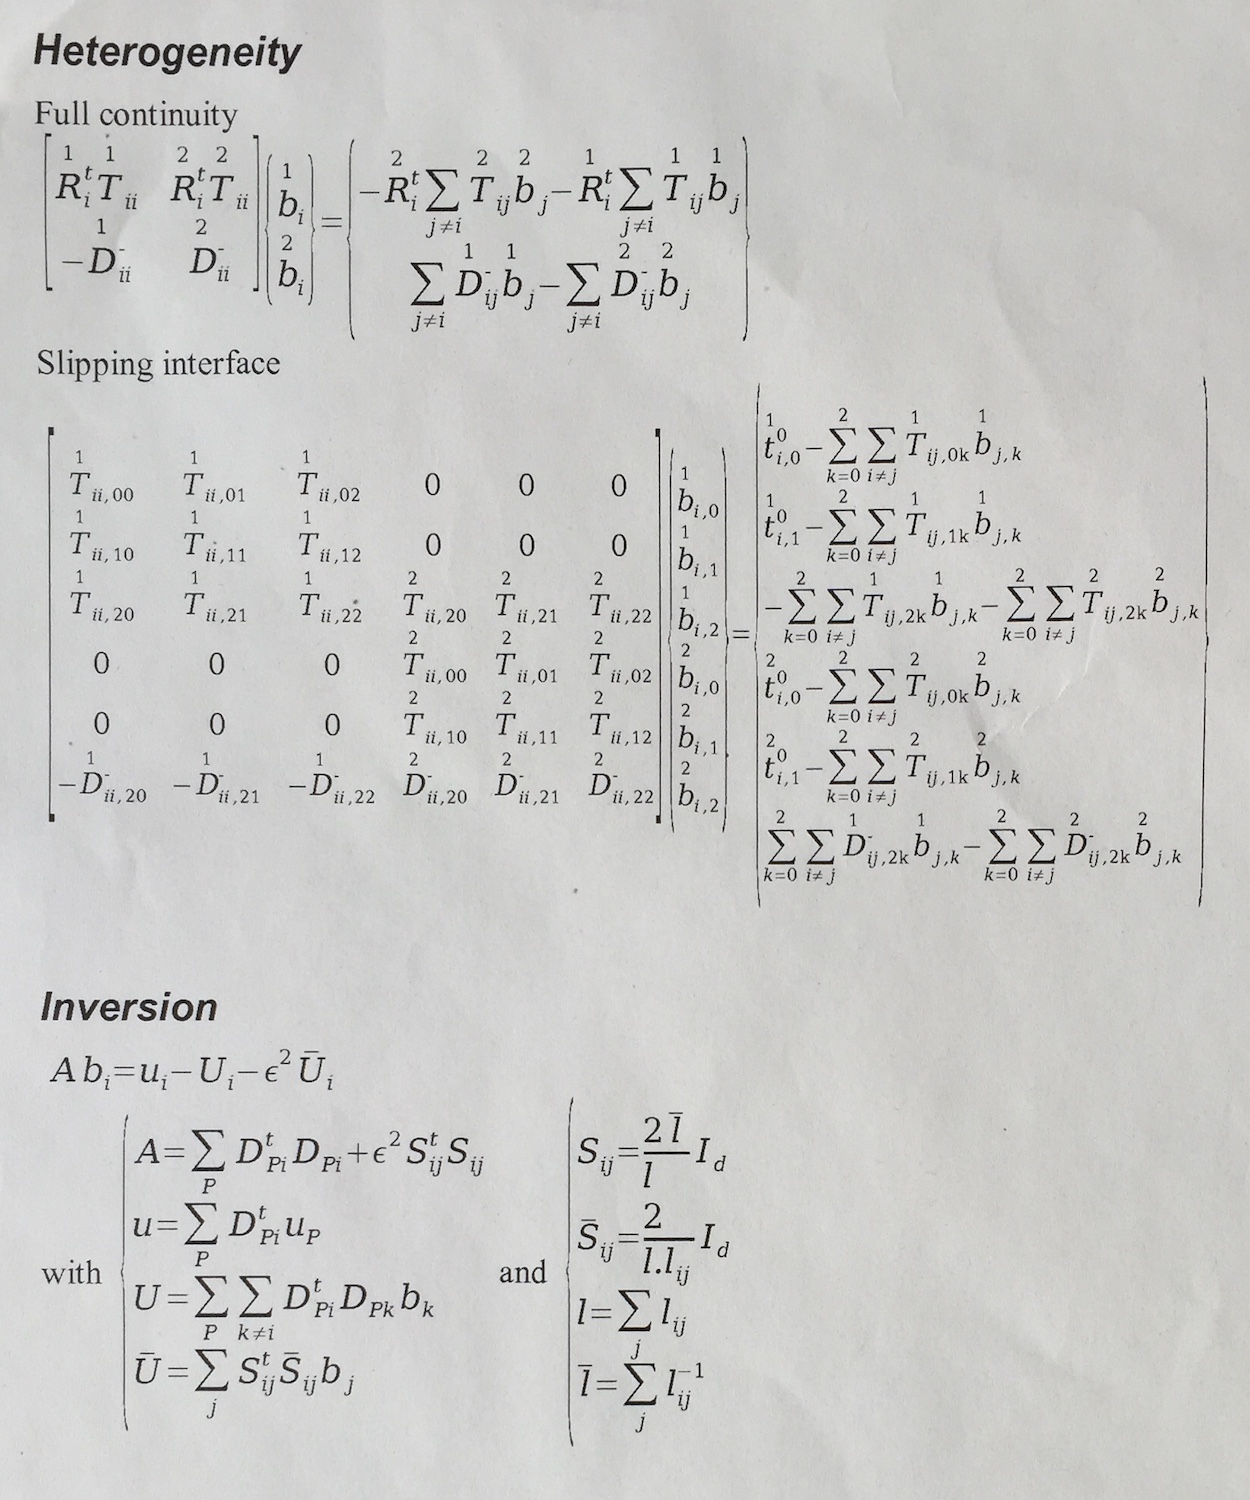 Heterogeneity
Full continuity
$$\begin{bmatrix} \overset{1}{R}{}_i^t \overset{1}{T}_{ii} & \overset{2}{R}{}_i^t \overset{2}{T}_{ii} \\ -\overset{1}{D}{}^-_{ii} & \overset{2}{D}{}^-_{ii} \end{bmatrix} \begin{Bmatrix} \overset{1}{b}_i \\ \overset{2}{b}_i \end{Bmatrix} = \begin{Bmatrix} -\overset{2}{R}{}_i^t \sum_{j \neq i} \overset{2}{T}_{ij} \overset{2}{b}_j - \overset{1}{R}{}_i^t \sum_{j \neq i} \overset{1}{T}_{ij} \overset{1}{b}_j \\ \sum_{j \neq i} \overset{1}{D}{}^-_{ij} \overset{1}{b}_j - \sum_{j \neq i} \overset{2}{D}{}^-_{ij} \overset{2}{b}_j \end{Bmatrix}$$
Slipping interface
$$\begin{bmatrix} \overset{1}{T}_{ii,00} & \overset{1}{T}_{ii,01} & \overset{1}{T}_{ii,02} & 0 & 0 & 0 \\ \overset{1}{T}_{ii,10} & \overset{1}{T}_{ii,11} & \overset{1}{T}_{ii,12} & 0 & 0 & 0 \\ \overset{1}{T}_{ii,20} & \overset{1}{T}_{ii,21} & \overset{1}{T}_{ii,22} & \overset{2}{T}_{ii,20} & \overset{2}{T}_{ii,21} & \overset{2}{T}_{ii,22} \\ 0 & 0 & 0 & \overset{2}{T}_{ii,00} & \overset{2}{T}_{ii,01} & \overset{2}{T}_{ii,02} \\ 0 & 0 & 0 & \overset{2}{T}_{ii,10} & \overset{2}{T}_{ii,11} & \overset{2}{T}_{ii,12} \\ -\overset{1}{D}{}^-_{ii,20} & -\overset{1}{D}{}^-_{ii,21} & -\overset{1}{D}{}^-_{ii,22} & \overset{2}{D}{}^-_{ii,20} & \overset{2}{D}{}^-_{ii,21} & \overset{2}{D}{}^-_{ii,22} \end{bmatrix} \begin{Bmatrix} \overset{1}{b}_{i,0} \\ \overset{1}{b}_{i,1} \\ \overset{1}{b}_{i,2} \\ \overset{2}{b}_{i,0} \\ \overset{2}{b}_{i,1} \\ \overset{2}{b}_{i,2} \end{Bmatrix} = \begin{Bmatrix} \overset{1}{t}{}^0_{i,0} - \sum_{k=0}^{2} \sum_{i \neq j} \overset{1}{T}_{ij,0k} \overset{1}{b}_{j,k} \\ \overset{1}{t}{}^0_{i,1} - \sum_{k=0}^{2} \sum_{i \neq j} \overset{1}{T}_{ij,1k} \overset{1}{b}_{j,k} \\ -\sum_{k=0}^{2} \sum_{i \neq j} \overset{1}{T}_{ij,2k} \overset{1}{b}_{j,k} - \sum_{k=0}^{2} \sum_{i \neq j} \overset{2}{T}_{ij,2k} \overset{2}{b}_{j,k} \\ \overset{2}{t}{}^0_{i,0} - \sum_{k=0}^{2} \sum_{i \neq j} \overset{2}{T}_{ij,0k} \overset{2}{b}_{j,k} \\ \overset{2}{t}{}^0_{i,1} - \sum_{k=0}^{2} \sum_{i \neq j} \overset{2}{T}_{ij,1k} \overset{2}{b}_{j,k} \\ \sum_{k=0}^{2} \sum_{i \neq j} \overset{1}{D}{}^-_{ij,2k} \overset{1}{b}_{j,k} - \sum_{k=0}^{2} \sum_{i \neq j} \overset{2}{D}{}^-_{ij,2k} \overset{2}{b}_{j,k} \end{Bmatrix}$$
Inversion
$$A b_i = u_i - U_i - \epsilon^2 \bar{U}_i$$
$$\text{with } \begin{cases} A = \sum_P D^t_{Pi} D_{Pi} + \epsilon^2 S^t_{ij} S_{ij} \\ u = \sum_P D^t_{Pi} u_P \\ U = \sum_P \sum_{k \neq i} D^t_{Pi} D_{Pk} b_k \\ \bar{U} = \sum_j S^t_{ij} \bar{S}_{ij} b_j \end{cases} \text{ and } \begin{cases} S_{ij} = \frac{2\bar{l}}{l} I_d \\ \bar{S}_{ij} = \frac{2}{l.l_{ij}} I_d \\ l = \sum_j l_{ij} \\ \bar{l} = \sum_j l_{ij}^{-1} \end{cases}$$